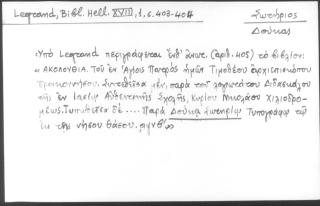 Legrand, Bibl. Hell. XVIII, 1, σ. 403-404
Σωτήριος
Δούκας
Ὑπὸ Legrand περιγράφεται ἐνθ' ἀνωτ. (ἀρ. 405) τὸ βιβλίον:
« ΑΚΟΛΟΥΘΙΑ. Τοῦ ἐν Ἁγίοις Πατρὸς ἡμῶν Τιμοθέου ἀρχιεπισκόπου
Προικονήσου. Συντεθεῖσα μὲν, παρὰ τοῦ λογιωτάτου Διδασκάλου
τῆς ἐν Ἰασίῳ Αὐθεντικῆς Σχολῆς, Κυρίου Νικολάου
Τυπωθεῖσα δὲ .... Παρὰ Δούκα Σωτηρίου Τυπογράφου τοῦ
ἐκ τῆς νήσου Θάσου. αψνθ'»